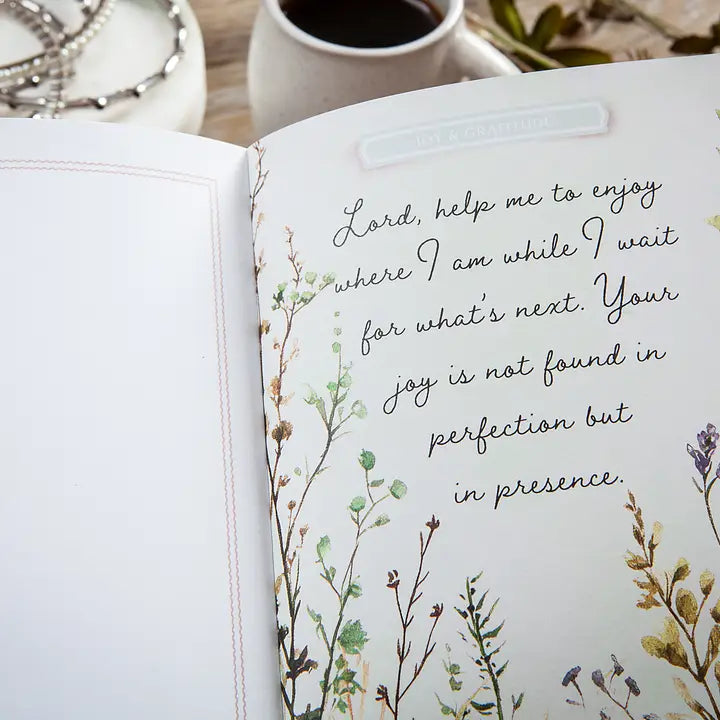 JOY & GRATITUDE
Lord, help me to enjoy
where I am while I wait
for what's next. Your
joy is not found in
perfection but
in presence.